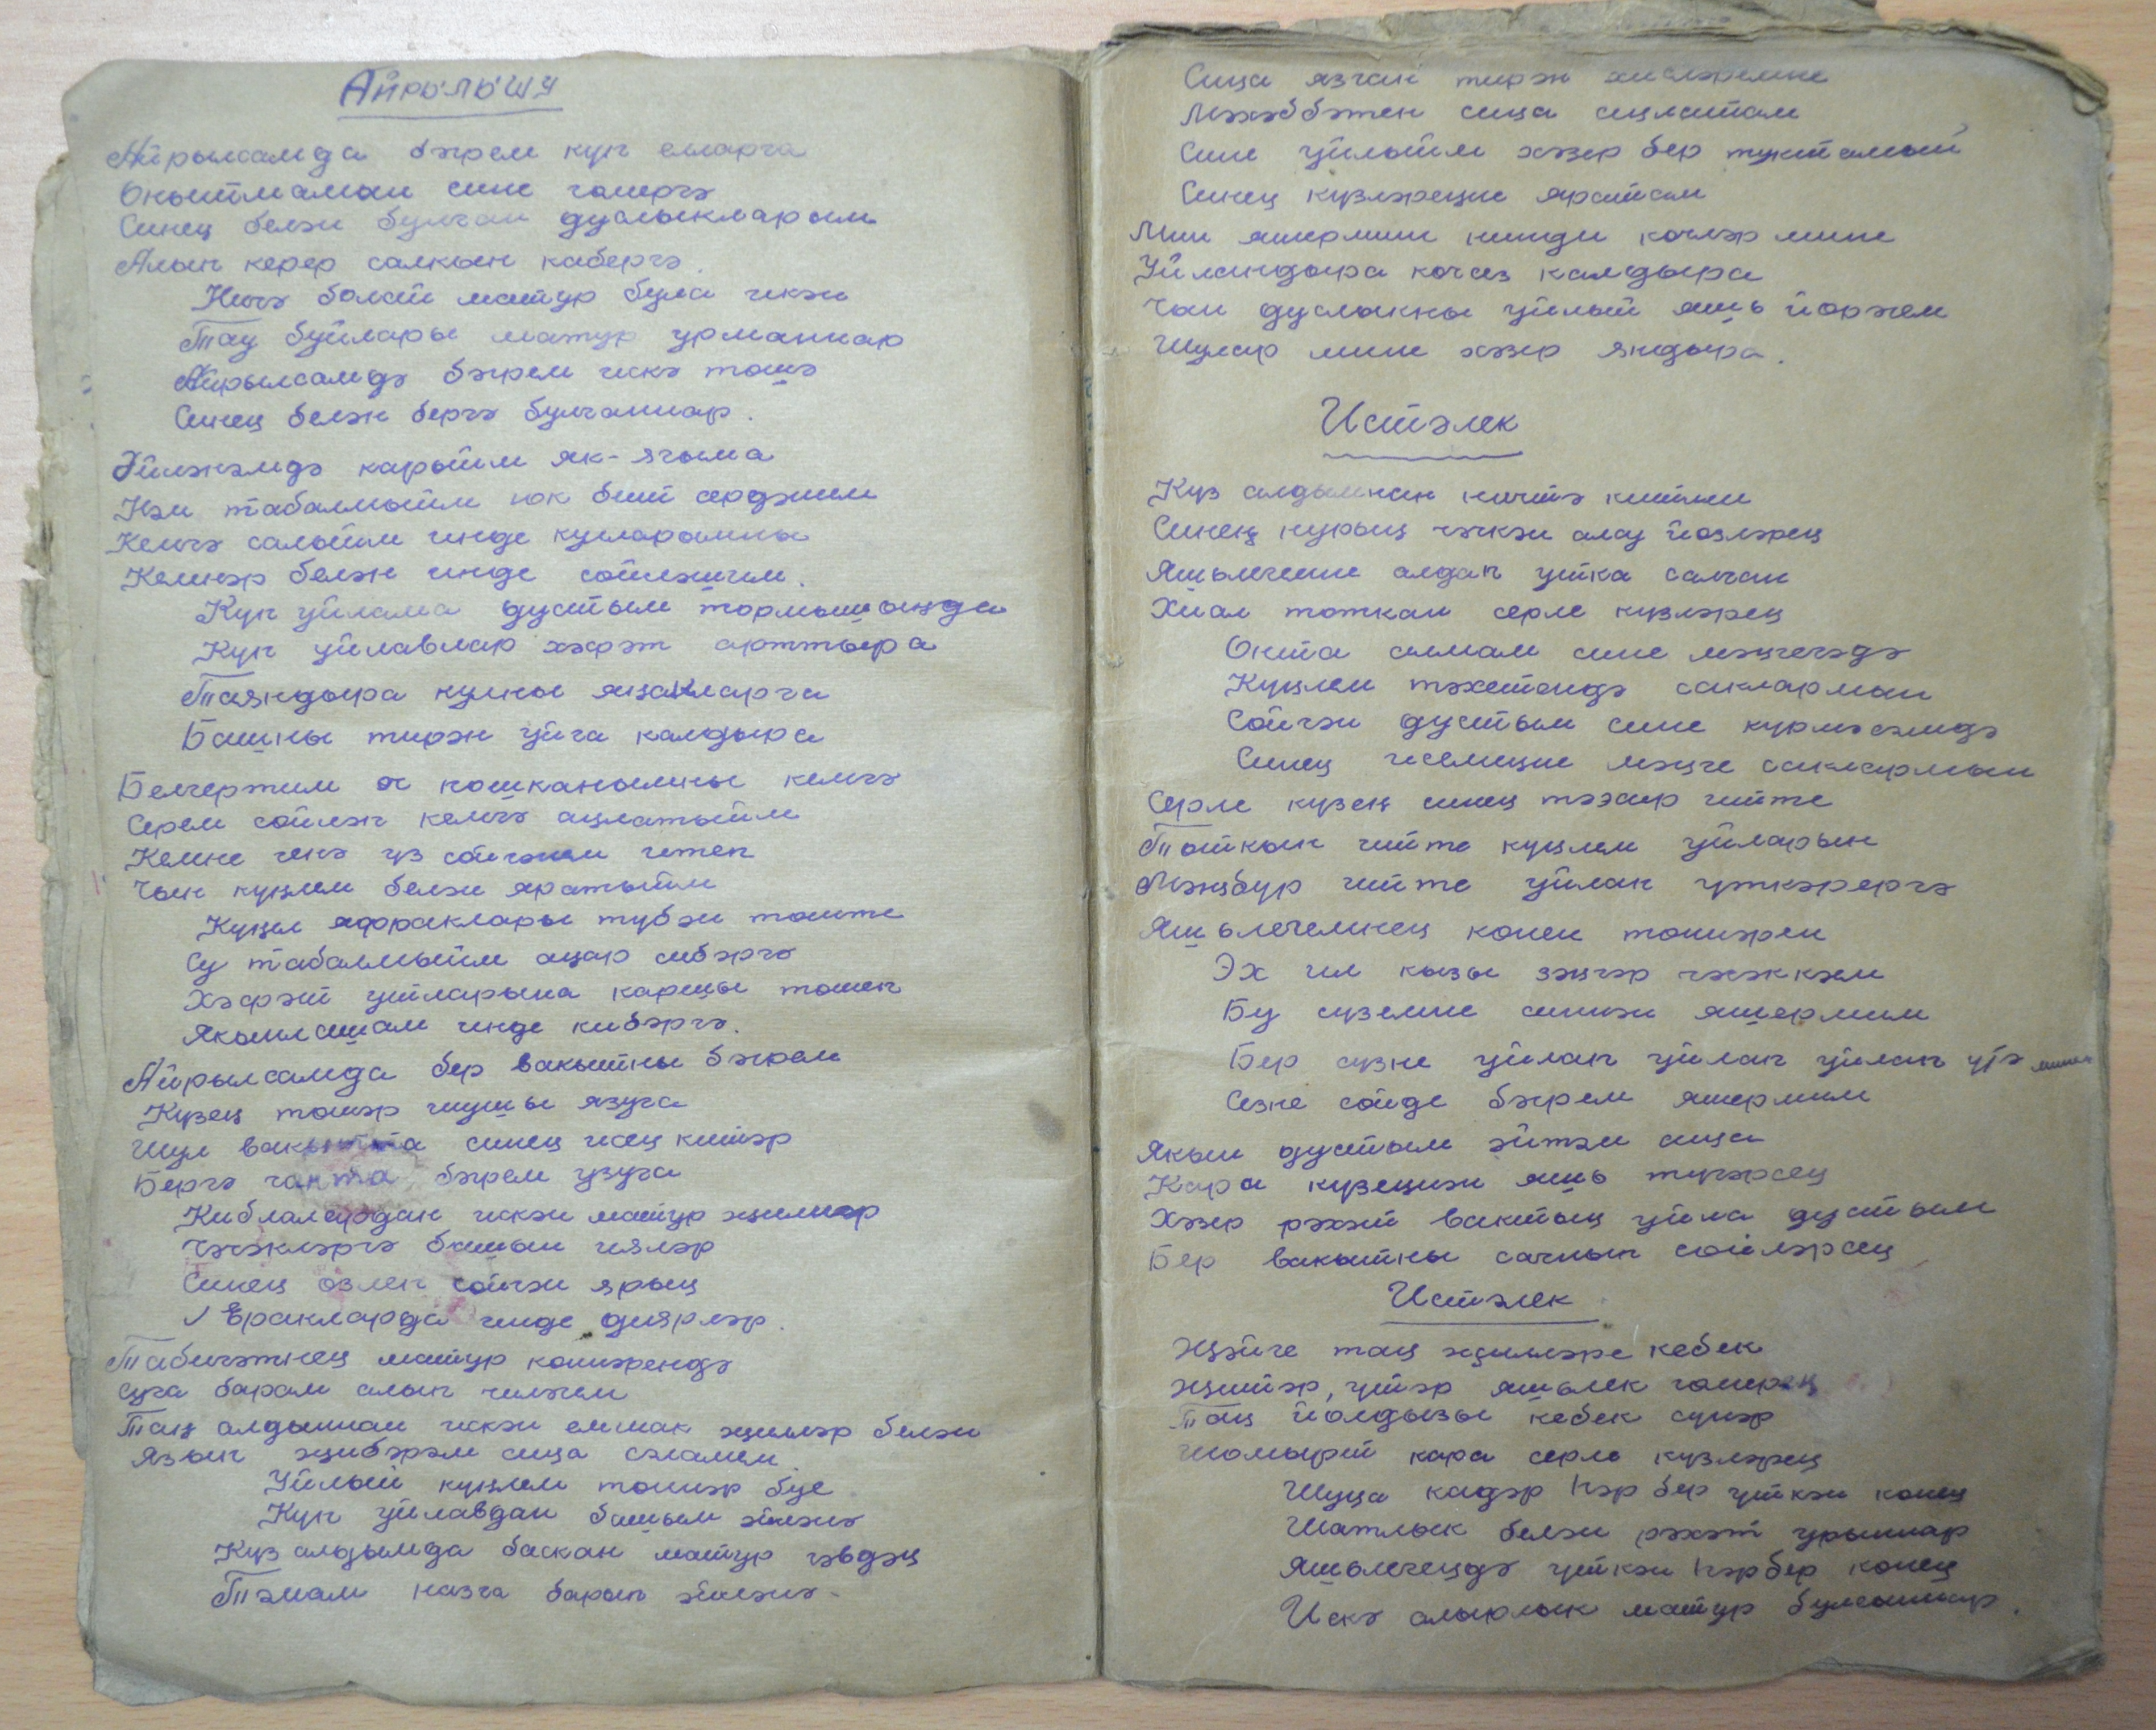 Айрылышу
Айрылсамда бэгрем куп елларга
Онытмамын сине гомергэ
Синец белэн булган дуслыкларым
Алып керер салкын каберга.
Ничэ болай матур була икэн
Тау буйлары матур урманнар
Айрылсамдэ бэгрем искэ тошэ
Синец белэн бергэ булганнар.
Эйлэнэмдэ карыйм як-ягыма
Нэм табалмыйм юк бит сердэшем
Кемгэ салыйм инде кулларымны
Кемнэр белэн инде сойлэшим.
Куп уйлама дустым тормышыцда
Куп уйлавлар хэсрэт арттыра
Таяндыра кулны яцакларга
Башны тирэн уйга калдыра
Белгертим ог кошканымны кемгэ
Серем сойлэп кемгэ ацлатыйм
Кемне генэ уз сойгэнем итеп
Чын куцлем белэн яратыйм
Куцел яфраклары тубэн тоште
Су табалмыйм ацар сибэргэ
Хэсрэт уйларына каршы тошеп
Якынлашам инде кибэргэ.
Айрылсамда бер вакытны бэгрем
Кузец тошэр шушы язуга
Шул вакытта синец исец китэр
Бергэ чакта бэгрем узуга
Кибламардан искэн матур жиллэр
Чэчэклэргэ башын иялэр
Синец озлеп сойгэн ярыц
Еракларда инде диярлэр.
Табигэтнец матур коннэрендэ
суга барам алып чилэгем
Тац алдыннан искэн еммак жиллэр белэн
Язып жибэрэм сица сэламем.
Уйлый куцлем тоннэр буе
Куп уйлавдан башым эйлэнэ
Куз алдымда баскан матур гэвдэц
Тэмам назга барып эйлэнэ.
Сица язган тирэн хислэремне
Мэхэббэтен сица ацлатам
Сине уйлыйм хэзер бер туктамый
Синец кузлэрецне яратам
Мин яшермим нинди кочлэр мине
Уйландыра кочсез калдыра
Чын дуслыкны уйлый яшь йорэгем
Шулар мине хэзер яндыра.
Истэлек
Куз алдымнан ничтэ китми
Синец нурыц чэчкэн алсу йозлэрец
Яшьлегемне алдап уйка салган
Хиал тоткан серле кузлэрец
Оныта алмам сине мэцгегэдэ
Куцлем тэхетендэ саклармын
Сойгэн дустым сине курмэсэмдэ
Синец исемецне мэцге саклармын
Серле кузец синец тээсир итте
Ташкын итте куцлем уйларын
Мэжбур итте уйлап уткэрергэ
Яшьлегемнец конен тоннэрен
Эх ил кызы зэцгэр чэчэккэем
Бу суземне синнэн яшермим
Бер сузне уйлап уйлап уйлап уза
Сезне сойде бэгрем яшермим
Якын дустым эйтэм сица
Кара кузецнэн яшь тугэрсец
Хэзер рэхэт вактыц уйла дустым
Бер вакытны сагнып сойлэрсец
Истэлек
Жэйге тац жиллэре кебек
Жиллэр, утэр яшьлек гомерец
Тац йолдызы кебек сунэр
Шомырт кара серле кузлэрец
Шуца кадэр һэр бер уткэн конец
Шатлык белэн рэхэт урыннар
Яшьлегецдэ уткэн һэрбер конец
Искэ алырлык матур булсыннар.